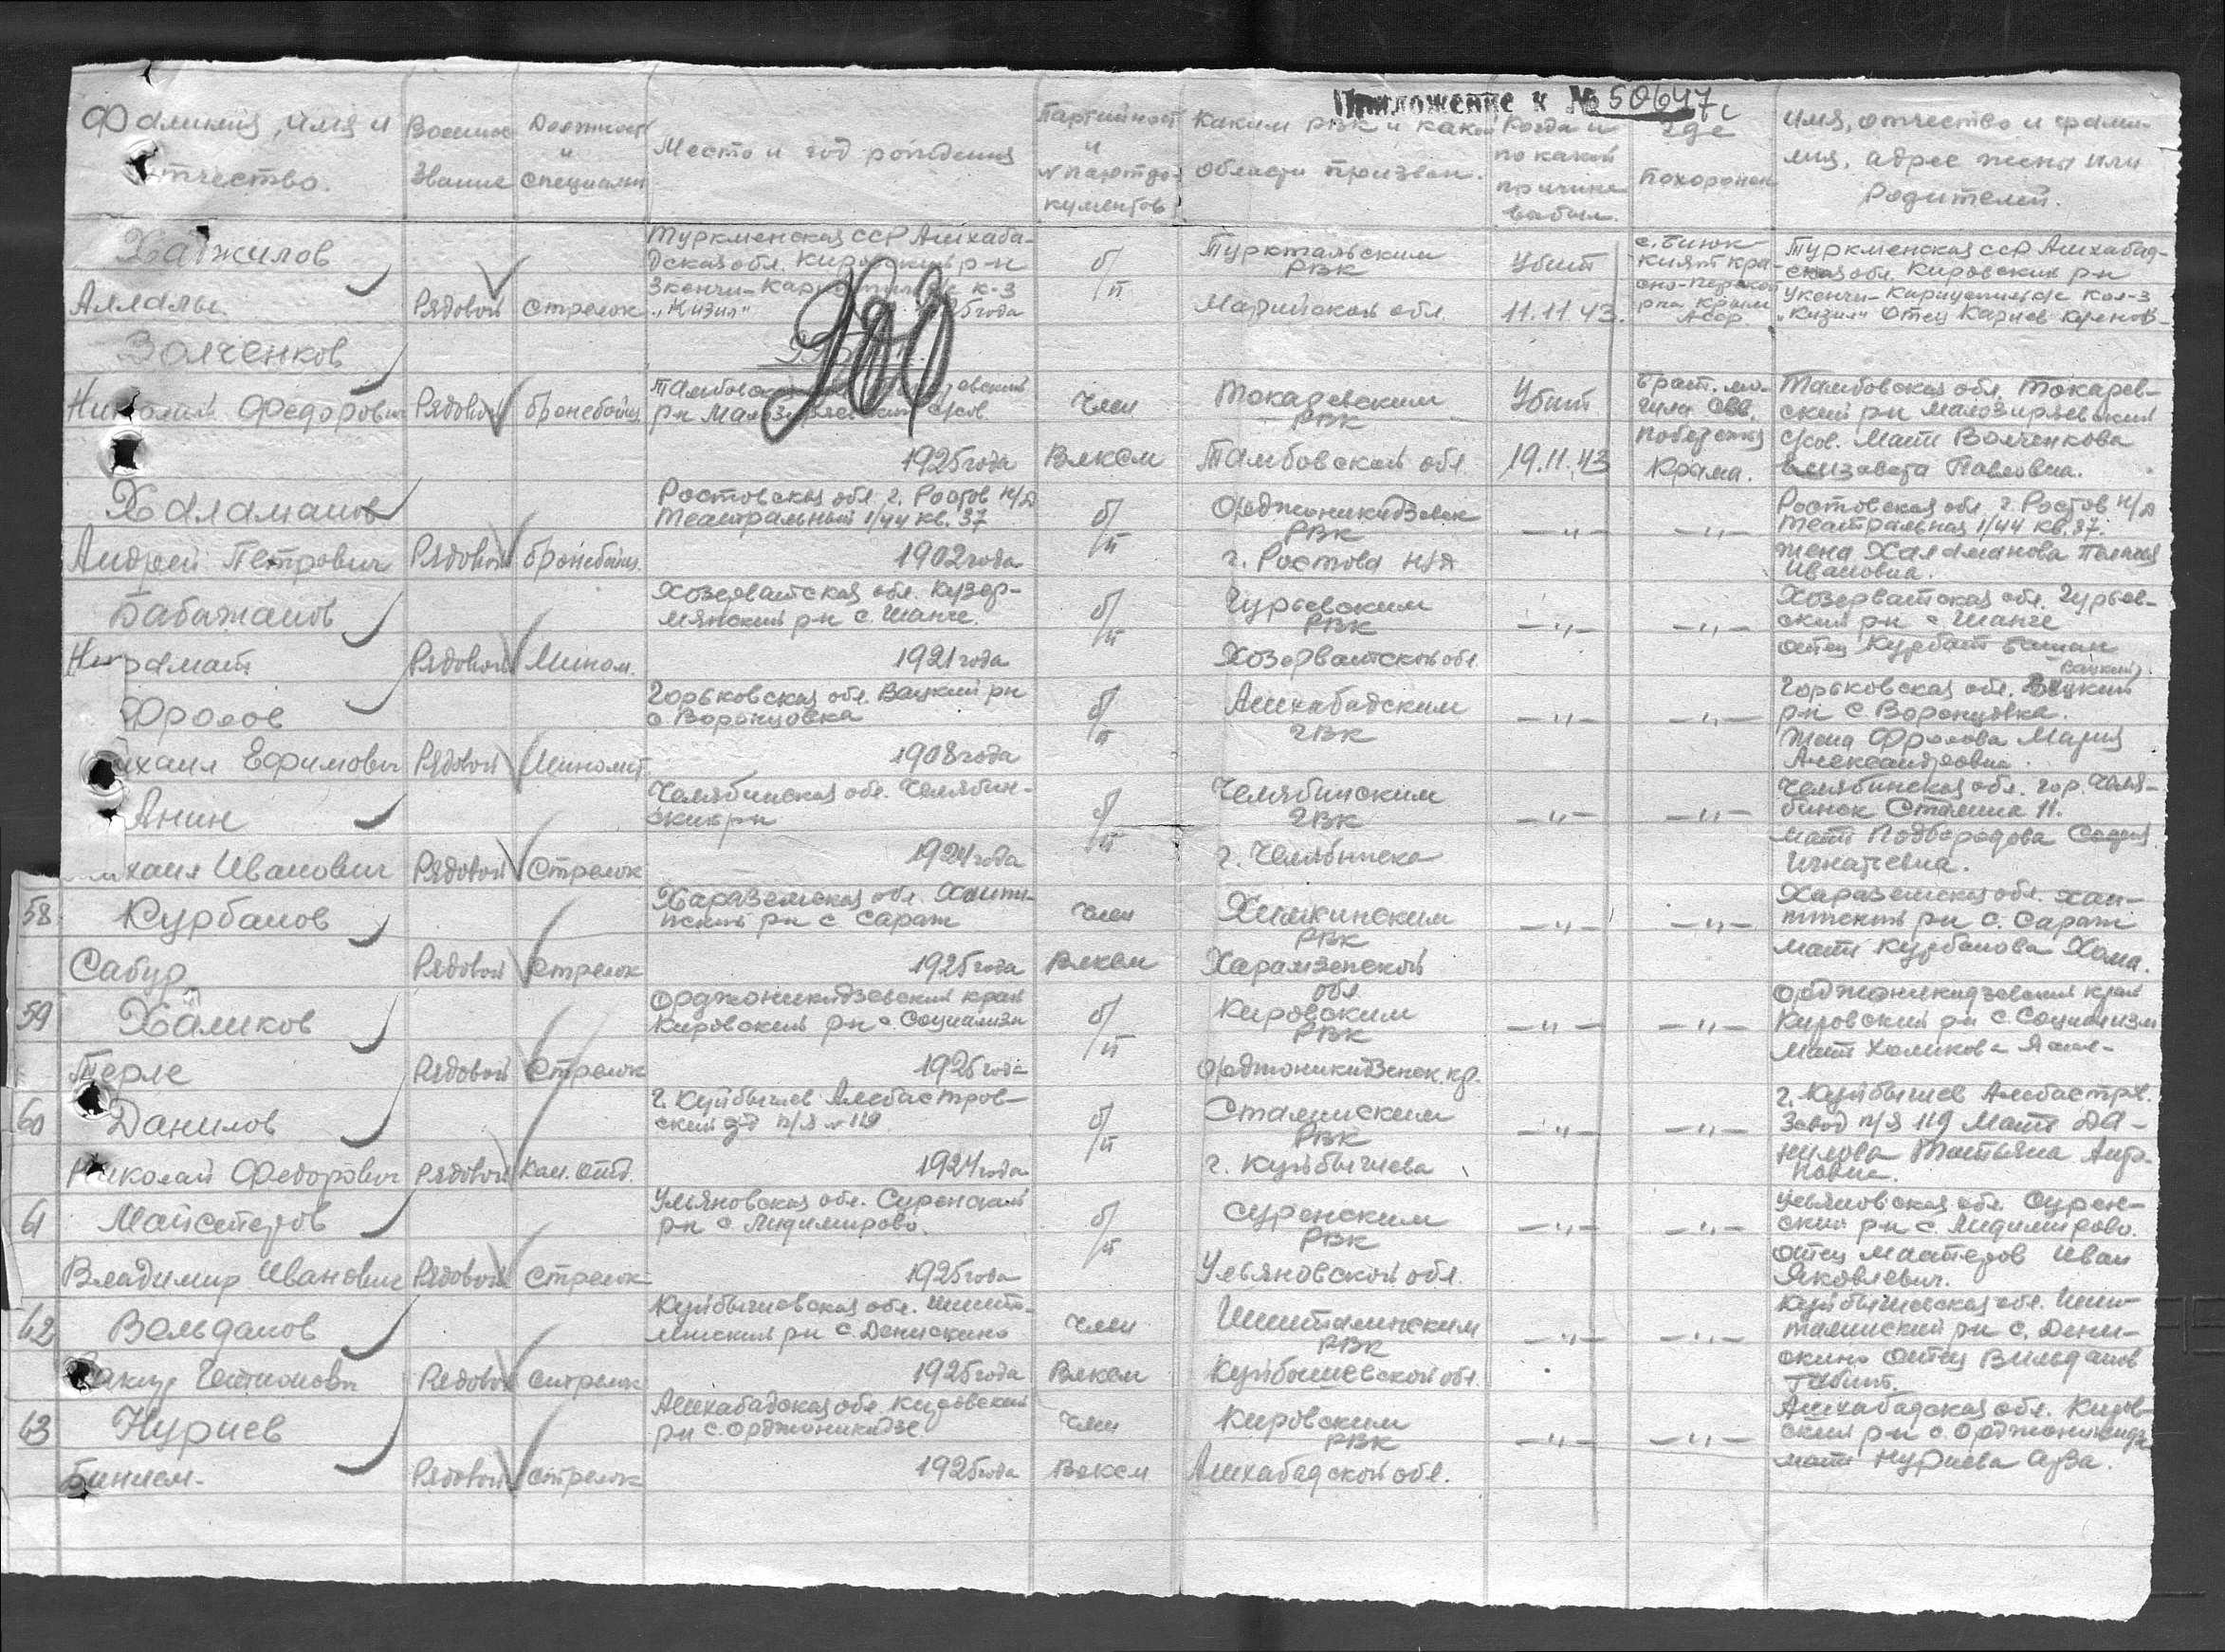 Приложение к № 50647с
Фамилия, имя и отчество.
Военное звание
Должност и специальн
Место и год рождения
Партийност и № партдокументов
Каким РВК и какой области призван.
Когда и по какой причине выбыл.
где похоронен
Имя, отчество и фамилия, адрес жены или родителей.
Хаджилов
Рядовой
стрелок
Туркменская ССР Ашхаба-
дская обл. Кировский р-н
к-з
б/п
РВК
Марийской обл.
Убит
11.11.43.
Крым
АССР.
Туркменская ССР Ашхабад-
ская обл. Кировский рн
кол-з
Отец Кариев
200
Волченков
Николай Федорович
Рядовой
бронебойщ.
Тамбовская
рн
с/сов.
1925 года
Член
ВЛКСМ
Токаревским
РВК
Тамбовской обл.
Убит
19.11.43
Брат. мо-
гила
Крыма.
Тамбовская обл. Токарев-
ский рн Малозверяевский
с/сов. Мать Волченкова
Елизавета Павловна.
Халаманов
Андрей Петрович
Рядовой
бронебойщ.
Ростовская обл. г. Ростов н/Д
Театральный 1/44 кв. 37
1902 года
б/п
РВК
г. Ростова н/Д
—"—
—"—
Ростовская обл. г. Ростов н/Д
Театральная 1/44 кв. 37.
жена Халаманова
Ивановна.
Бабажанов
Рядовой
Мином.
Хозерватская обл.
рн с. Шанче.
1921 года
б/п
Гурьевским
РВК
Хозерватской обл.
—"—
—"—
Хозерватская обл. Гурьев-
ский рн с Шанче
отец Курбат
Фролов
Михаил Ефимович
Рядовой
Миномет.
Горьковская обл. Вачский рн
с Воронцовка
1908 года
б/п
Ашхабадским
ГВК
—"—
—"—
Горьковская обл.
рн с Воронцовка.
Жена Фролова Мария
Александровна.
Анин
Михаил Иванович
Рядовой
Стрелок
Челябинская обл. Челябин-
ский рн
1924 года
б/п
Челябинским
ГВК
г. Челябинска
—"—
—"—
Челябинская обл. гор. Челя-
бинск Сталина 11.
мать Подбородова
Игнатевна.
58
Курбанов
Сабур
Рядовой
Стрелок
рн с Сараж
1925 года
Член
ВЛКСМ
РВК
обл
—"—
—"—
рн с. Сараж
мать Курбанова Хама.
59
Халиков
Терле
Рядовой
Стрелок
Орджоникидзевский край
Кировский рн с Социализм
1925 года
б/п
Кировским
РВК
Орджоникидзевск. кр.
—"—
—"—
Орджоникидзевский край
Кировский рн с. Социализм
мать Халикова
60
Данилов
Николай Федорович
Рядовой
Ком. отд.
г. Куйбышев Алебастров-
ский з-д п/я № 119
1924 года
б/п
Сталинским
РВК
г. Куйбышева
—"—
—"—
г. Куйбышев Алебастров.
Завод п/я 119 Мать Да-
нилова Татьяна
61
Майстеров
Владимир Иванович
Рядовой
стрелок
Ульяновская обл. Суренский
рн с
1925 года
б/п
Суренским
РВК
Ульяновской обл.
—"—
—"—
Ульяновская обл. Сурен-
ский рн с.
отец Иван
Яковлевич.
62
Вольданов
Рядовой
стрелок
Куйбышевская обл. Шента-
линский рн с. Денискино
1925 года
Член
ВЛКСМ
Шенталинским
РВК
Куйбышевской обл.
—"—
—"—
Куйбышевская обл. Шен-
талинский рн с. Дени-
скино отец Вильданов
Габит.
63
Нуриев
Рядовой
стрелок
Ашхабадская обл. Кировский
рн с. Орджоникидзе
1925 года
Член
ВЛКСМ
Кировским
РВК
Ашхабадской обл.
—"—
—"—
Ашхабадская обл. Киров-
ский рн с Орджоникидзе
мать Нуриева